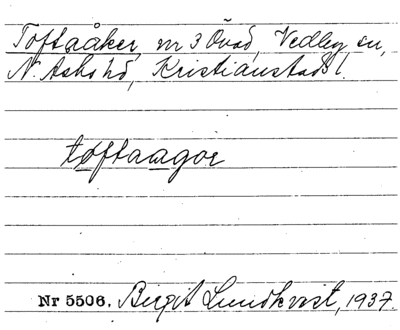 Toftaåker, nr 3 Övad, Vedby sn,
N. Åsbo hd, Kristianstads l.
tøftaagor
Nr 5506. Birgit Lundkvist, 1937.